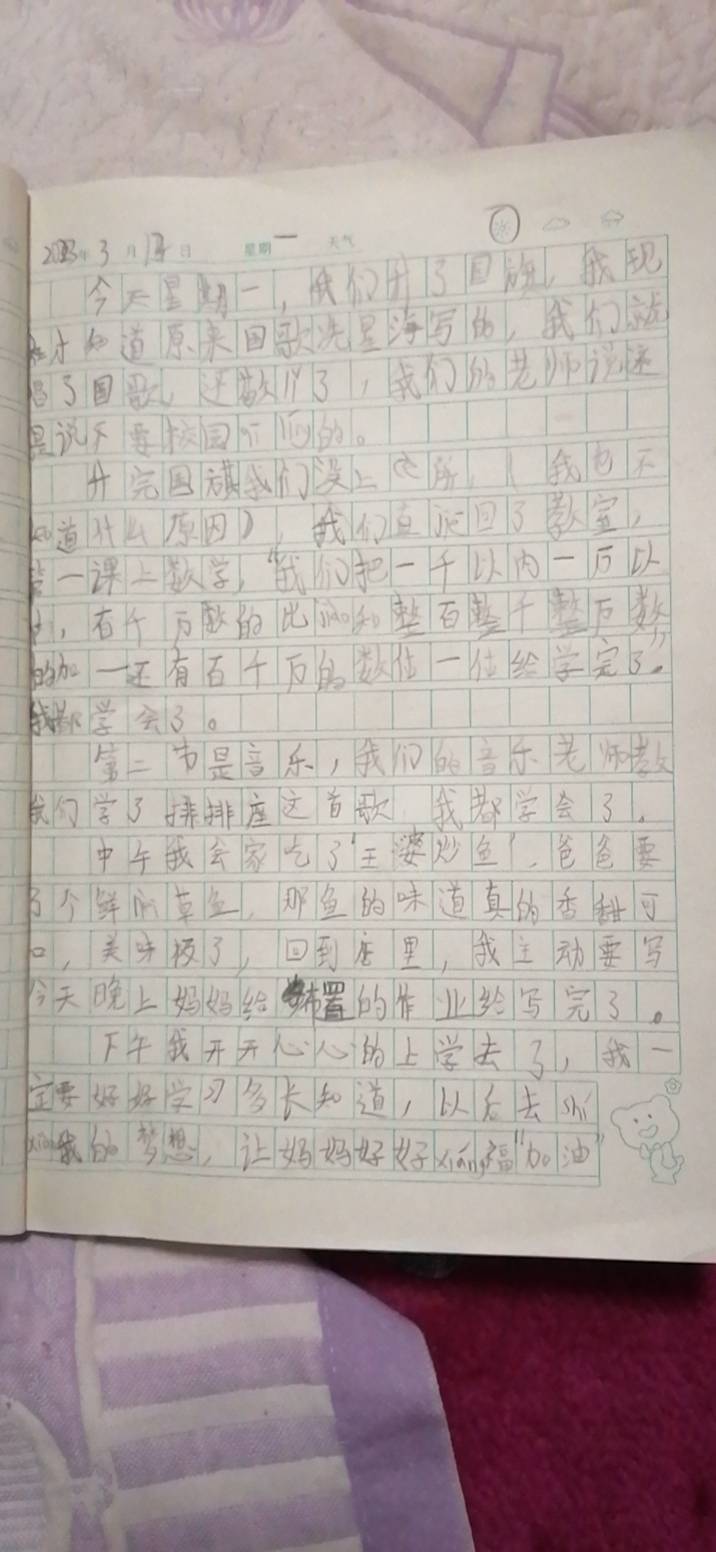 2023年3月13日 星期一 天气
今天星期一，我们升了国旗，我现
才知道原来国歌冼星海写的，我们就
唱了国歌，还敬礼了，我们的老师说这
是说不要校园的。
升完国旗我们没上厕所，（我也不
知道什么原因），我们直还回了教室，
第一课上数学，“我们把一千以内一万以
内，百千万数的比和整百整千整万数
的加一还有百千万的数位一位给学完了”。
我都学会了。
第二节是音乐，我们的音乐老师教
我们学了排排座这首歌，我都学会了。
中午我会家吃了“王婆炒鱼”，爸爸要
了个鲜的草鱼，那鱼的味道真的香甜可
口，美味极了，回到店里，我主动要写
今天晚上妈妈给布置的作业给写完了。
下午我开开心心的上学去了，我一
定要好好学习多长知道，以后去shí
xiàn我的梦想，让妈妈好好xiǎng福“加油”